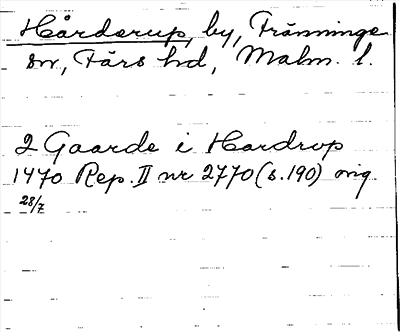 Hårderup, by, Tränninge
sn, Färs hd, Malm. l.
2 Gaarde i Hardrop
1470 Rep. II nr 2770 (s. 190) orig.
28/7